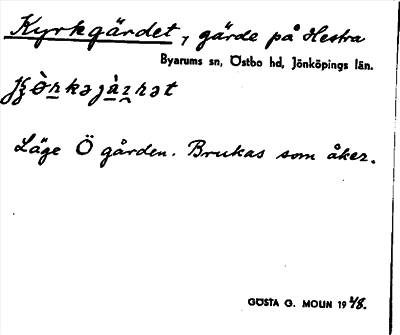 Kyrkgärdet, gärde på Hestra
Byarums sn, Östbo hd, Jönköpings län.
Läge Ö gården. Brukas som åker.
GÖSTA G. MOLIN 1948.